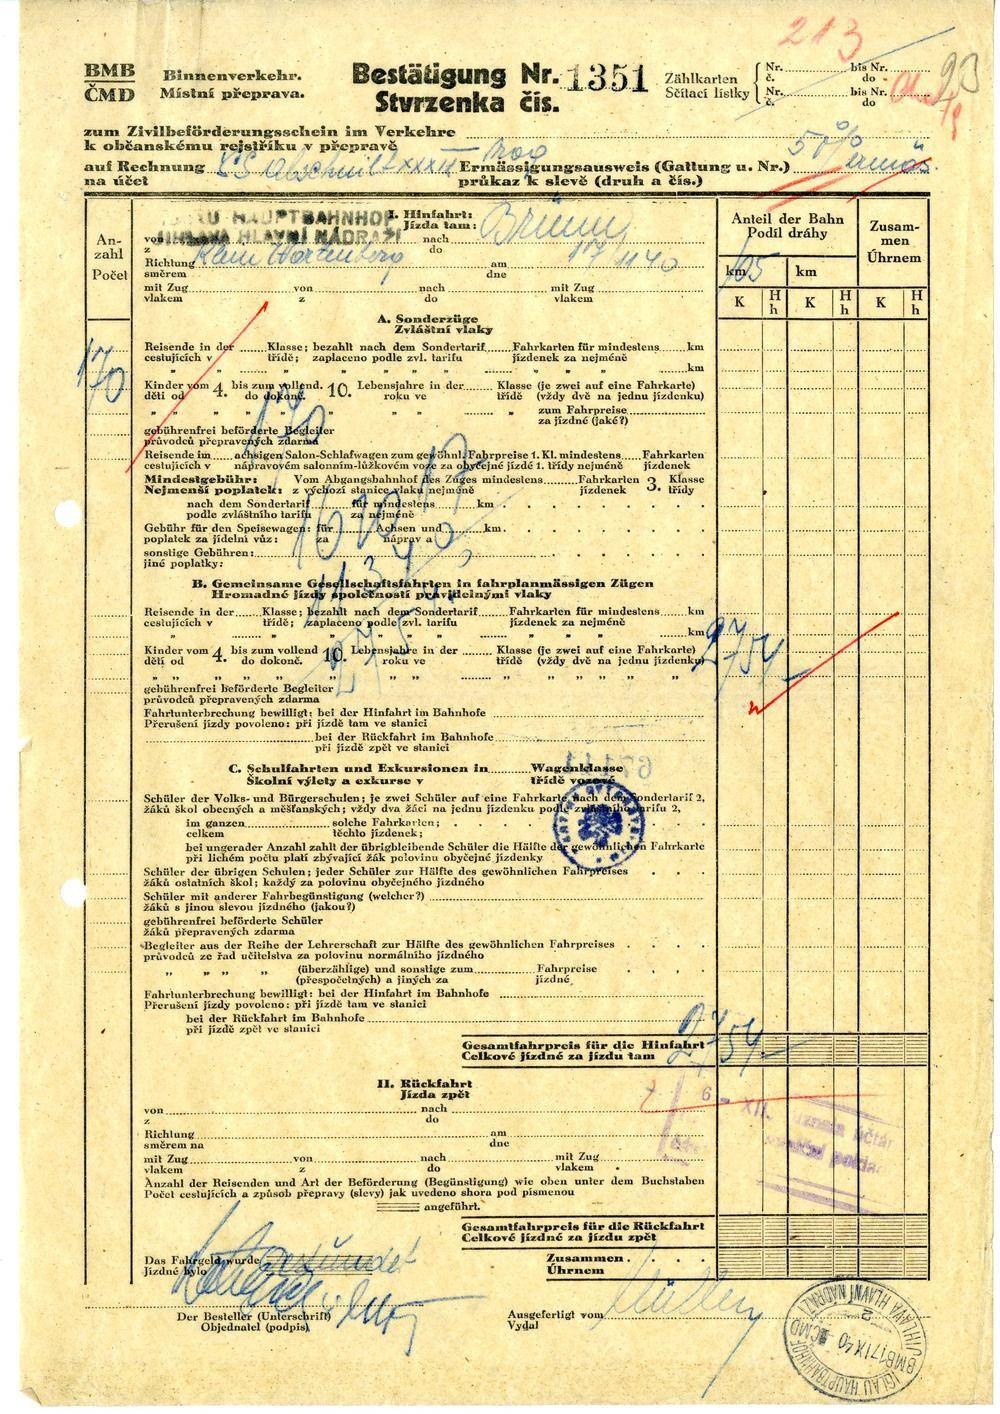 213
BMB
ČMD
Binnenverkehr.
Místní přeprava.
Bestätigung Nr. 1351
Stvrzenka čís.
Zählkarten
Sčítací lístky
Nr. bis Nr.
č. do
Nr. bis Nr.
č. do
93
zum Zivilbeförderungsschein im Verkehre
k občanskému rejstříku v přepravě
auf Rechnung SS Abschnitt XXXIX Prag Ermässigungsausweis (Gattung u. Nr.) 50%
na účet průkaz k slevě (druh a čís.)
An-
zahl
Počet
IGLAU HAUPTBAHNHOF
JIHLAVA HLAVNÍ NÁDRAŽÍ
I. Hinfahrt:
Jízda tam:
von nach Brünn
z do
Richtung am 17/11 40
směrem dne
mit Zug von nach mit Zug
vlakem z do vlakem
Anteil der Bahn
Podíl dráhy
Zusam-
men
Úhrnem
km 105 km
K H h K H h K H h
A. Sonderzüge
Zvláštní vlaky
Reisende in der Klasse; bezahlt nach dem Sondertarif Fahrkarten für mindestens km
cestujících v třídě; zaplaceno podle zvl. tarifu jízdenek za nejméně
„ „ „ „ „ „ „ „ „ km
170
Kinder vom 4. bis zum vollend. 10. Lebensjahre in der Klasse (je zwei auf eine Fahrkarte)
děti od do dokonč. roku ve třídě (vždy dvě na jednu jízdenku)
„ „ „ „ „ „ „ „ zum Fahrpreise
za jízdné (jaké?)
gebührenfrei beförderte Begleiter
průvodců přepravených zdarma
170
Reisende im achsigen Salon-Schlafwagen zum gewöhnl. Fahrpreise 1. Kl. mindestens Fahrkarten
cestujících v nápravovém salonním-lůžkovém voze za obyčejné jízdé 1. třídy nejméně jízdenek
Mindestgebühr: Vom Abgangsbahnhof des Zuges mindestens Fahrkarten 3. Klasse
Nejmenší poplatek: z výchozí stanice vlaku nejméně jízdenek třídy
nach dem Sondertarif für mindestens km
podle zvláštního tarifu za nejméně
Gebühr für den Speisewagen: für Achsen und km
poplatek za jídelní vůz: za náprav a
sonstige Gebühren:
jiné poplatky:
B. Gemeinsame Gesellschaftsfahrten in fahrplanmässigen Zügen
Hromadné jízdy společností pravidelnými vlaky
Reisende in der Klasse; bezahlt nach dem Sondertarif Fahrkarten für mindestens km
cestujících v třídě; zaplaceno podle zvl. tarifu jízdenek za nejméně
„ „ „ „ „ „ „ „ km
2754
Kinder vom 4. bis zum vollend 10. Lebensjahre in der Klasse (je zwei auf eine Fahrkarte)
děti od do dokonč. roku ve třídě (vždy dvě na jednu jízdenku)
„ „ „ „ „ „ „ „ „ „ „ „
gebührenfrei beförderte Begleiter
průvodců přepravených zdarma
Fahrtunterbrechung bewilligt: bei der Hinfahrt im Bahnhofe
Přerušení jízdy povoleno: při jízdě tam ve stanici
bei der Rückfahrt im Bahnhofe
při jízdě zpět ve stanici
C. Schulfahrten und Exkursionen in Wagenklasse
Školní výlety a exkurse v třídě vozové
Schüler der Volks- und Bürgerschulen; je zwei Schüler auf eine Fahrkarte nach dem Sondertarif 2,
žáků škol obecných a měšťanských; vždy dva žáci na jednu jízdenku podle zvláštního tarifu 2,
im ganzen solche Fahrkarten;
celkem těchto jízdenek;
bei ungerader Anzahl zahlt der übrigbleibende Schüler die Hälfte der gewöhnlichen Fahrkarte
při lichém počtu platí zbývající žák polovinu obyčejné jízdenky
Schüler der übrigen Schulen; jeder Schüler zur Hälfte des gewöhnlichen Fahrpreises
žáků ostatních škol; každý za polovinu obyčejného jízdného
Schüler mit anderer Fahrbegünstigung (welcher?)
žáků s jinou slevou jízdného (jakou?)
gebührenfrei beförderte Schüler
žáků přepravených zdarma
Begleiter aus der Reihe der Lehrerschaft zur Hälfte des gewöhnlichen Fahrpreises
průvodců ze řad učitelstva za polovinu normálního jízdného
„ „ „ „ (überzählige) und sonstige zum Fahrpreise
(přespočetných) a jiných za jízdné
Fahrtunterbrechung bewilligt: bei der Hinfahrt im Bahnhofe
Přerušení jízdy povoleno: při jízdě tam ve stanici
bei der Rückfahrt im Bahnhofe
při jízdě zpět ve stanici
Gesamtfahrpreis für die Hinfahrt
Celkové jízdné za jízdu tam
2754
II. Rückfahrt
Jízda zpět
6 - XII.
von nach
z do
Richtung am
směrem na dne
mit Zug von nach mit Zug
vlakem z do vlakem
Anzahl der Reisenden und Art der Beförderung (Begünstigung) wie oben unter dem Buchstaben
Počet cestujících a způsob přepravy (slevy) jak uvedeno shora pod písmenou
angeführt.
Gesamtfahrpreis für die Rückfahrt
Celkové jízdné za jízdu zpět
Das Fahrgeld wurde gestundet
Jízdné bylo
Zusammen
Úhrnem
Der Besteller (Unterschrift)
Objednatel (podpis)
Ausgefertigt vom
Vydal
JIHLAVA HLAVNÍ NÁDRAŽÍ
2
BMB 17 IX 40 ČMD
IGLAU HAUPTBAHNHOF